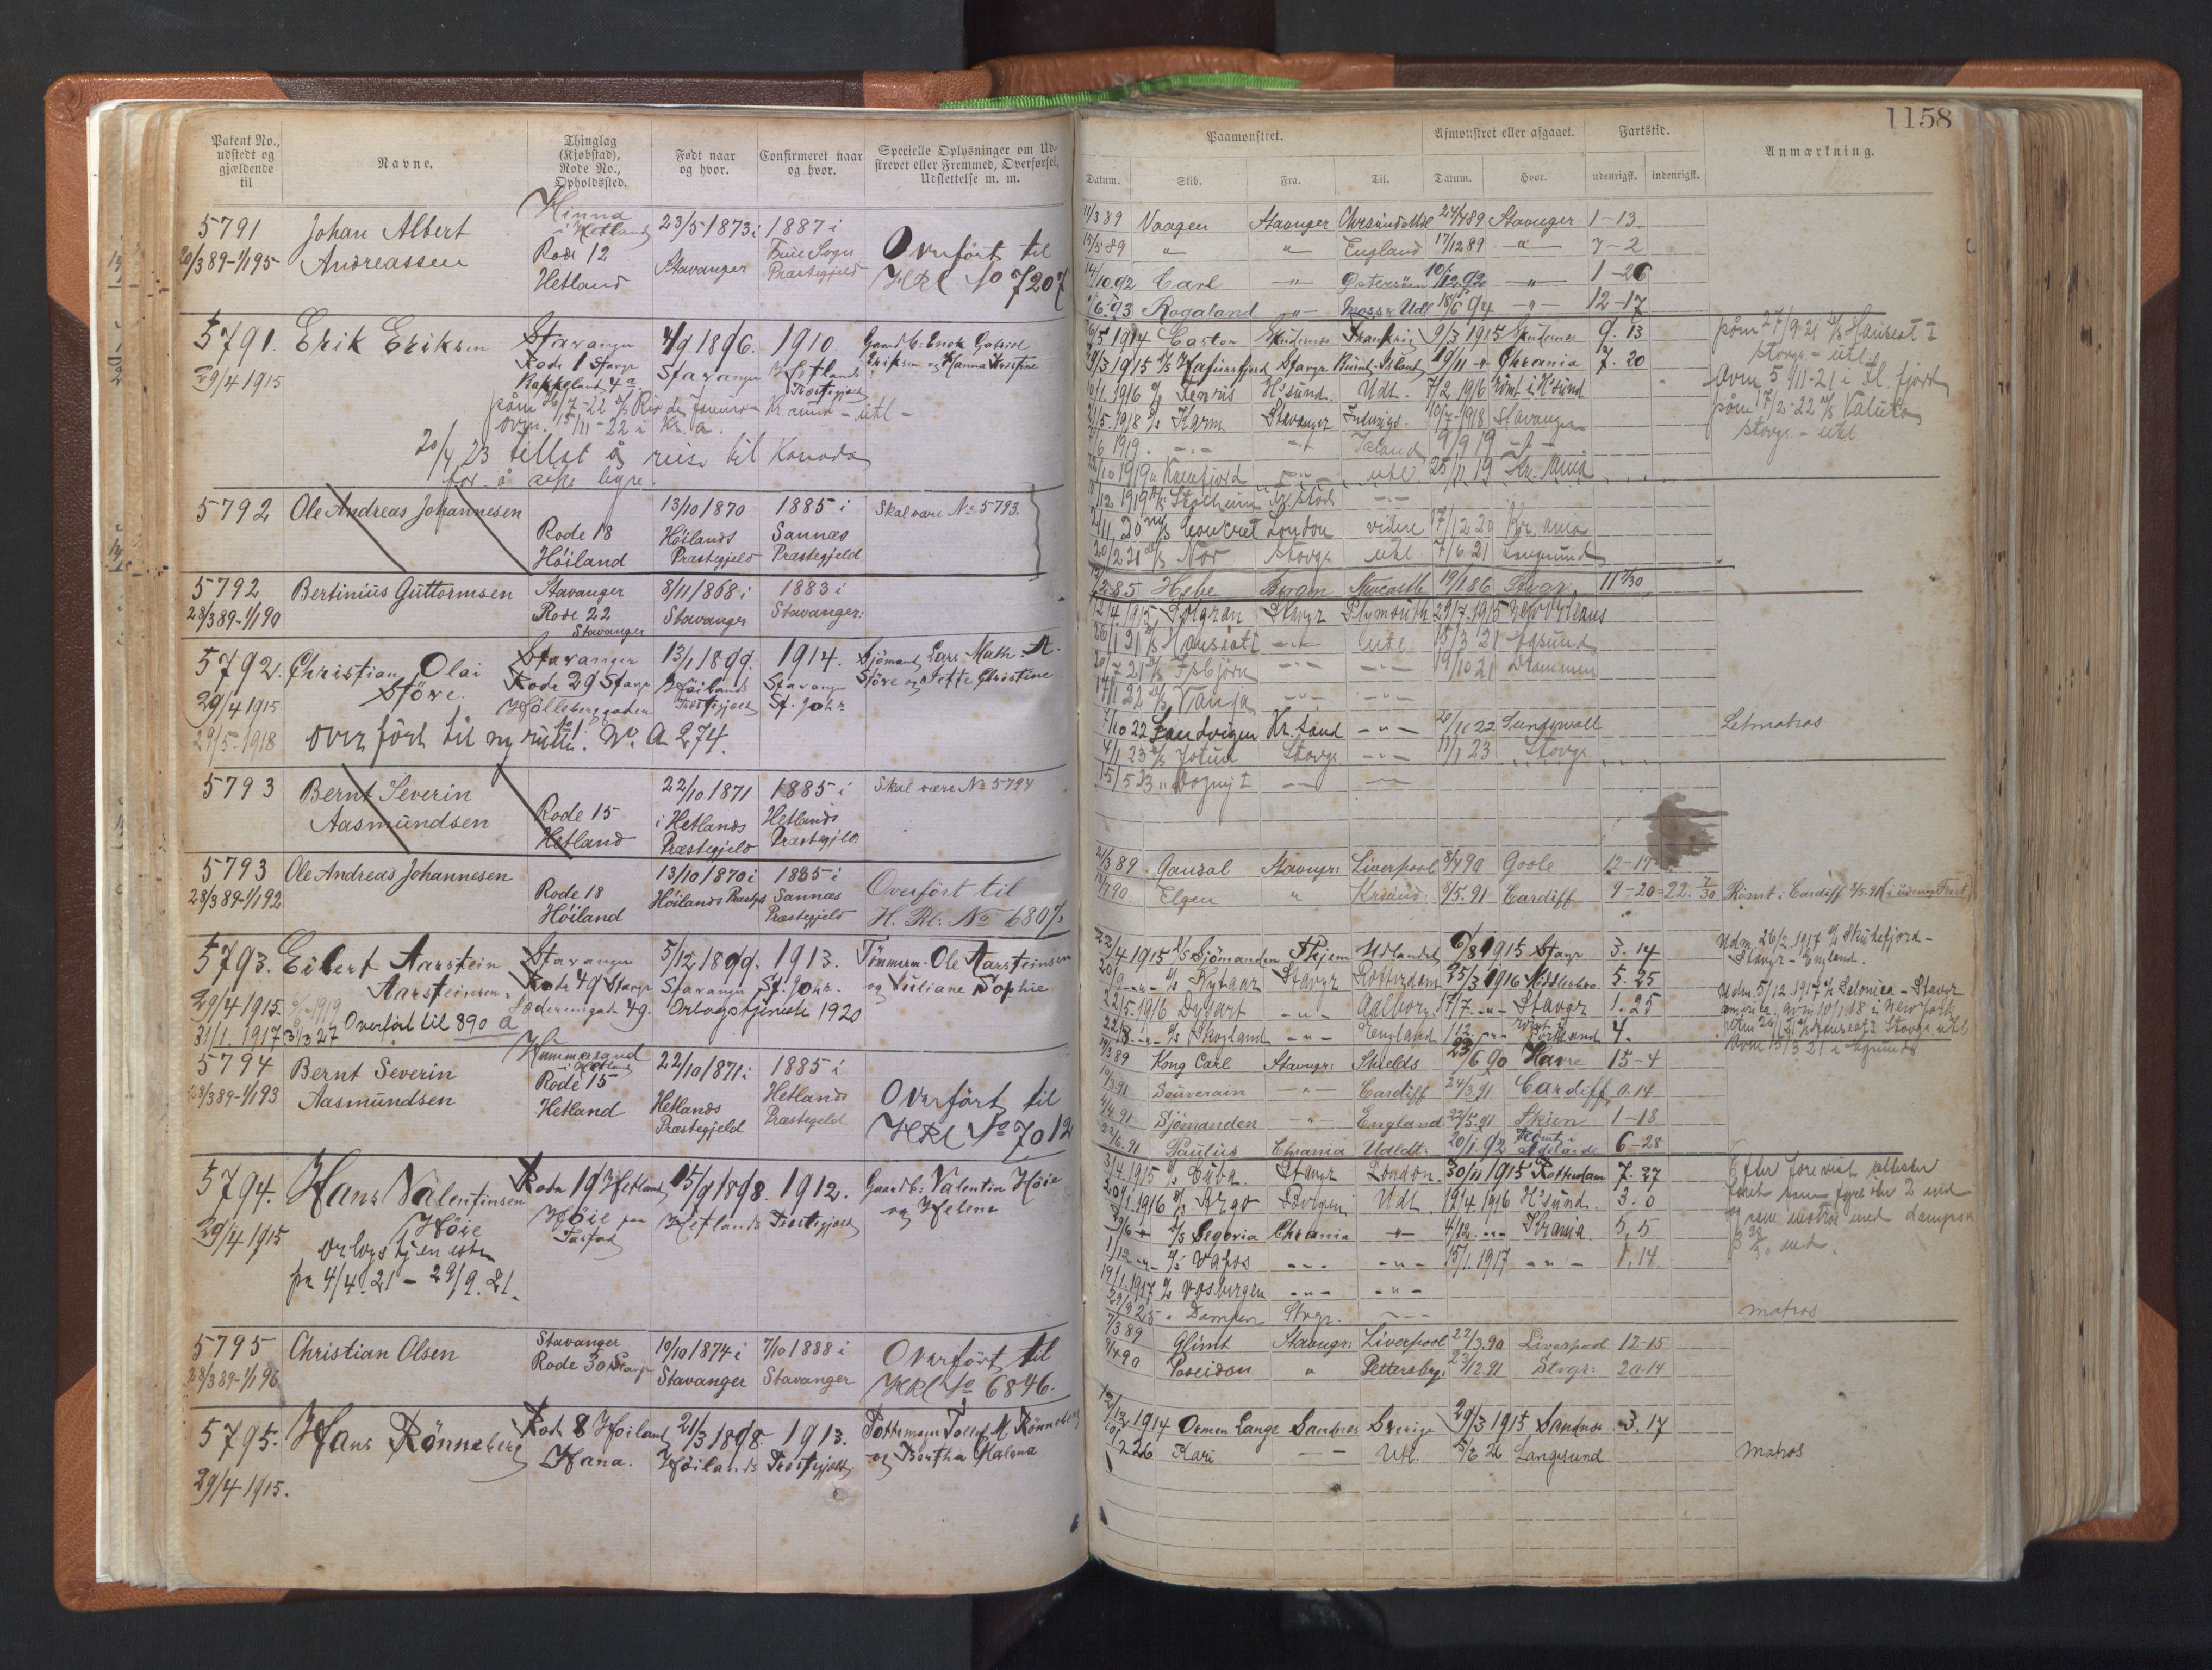 1158
Patent No., udstedt og gjældende til
Navne.
Thinglag (Kjøbstad), Rode No., Opholdssted.
Født naar og hvor.
Confirmeret naar og hvor.
Specielle Oplysninger om Udskrevet eller Fremmed, Overførsel, Udslettelse m. m.
Paamønstret.
Afmønstret eller afgaaet.
Fartstid.
Anmærkning.
Datum. Skib. Fra. Til. Datum. Hvor. udenrigsk. indenrigsk.
5791 Johan Albert Andreassen
20/3 89-1/1 95
Hinna i Hetland
Rode 12 Hetland
23/5 1873 i Stavanger
1887 i Frue Sogn Præstegjeld
Overført til HRl No 7207
11/3 89 Vaagen Stavanger Chrsund 24/4 89 Stavanger 1-13
13/5 89 " " England 17/12 89 -"- 7-2
14/10.92 Carl -"- Østersøen 10/12.92 -"- 1-26
1/6.93 Rogaland -"- Moss & Udl 18/6 94 -"- 12-17
5791. Erik Eriksen
29/4 1915
Stavanger Rode 1 Stavgr
Bakkeland 4 a
4/9 1896. Stavanger
1910. Hetlands Præstegjeld
Gaardb: Enok Eriksen og Hanna Kristine
påm 26/7-22 D/S Rio de Janeiro Kr.ania - utl -
avm. 15/11-22 i Kr.a.
20/4 23 tillat å reise til Kanada
for å søke hyre.
1914 Castor Skudesnes 9/3 1915 Skudesnes 9.13
29/3 1915 D/S Hafursfjord Stavgr 19/11 -"- Chrania 7.20
10/1.1916 D/S H'sund. Udt. 7/2.1916 Rømt i H'sund
1/5.1918 D/S Karm Stavanger Indenrigs. 10/7-1918 Stavanger
6 1919. -"- -"- Island 9/9 19 -"-
10 1919 -"- utl. 25/11 19 Kr. ania
12 1919
2/11 20 m/s Concret London videre 17/12 20 Kr. ania
20/2 21 D/S Nor Stavgr utl. 7/6 21 Langesund
påm 27/9-21 D/S Hauseat I
Stavgr. - utl.
avm 5/11-21 i Kr. fjord
påm 17/2-22 D/S Valuta
Stavgr - utl
5792 Ole Andreas Johannesen
Rode 18 Høiland
13/10 1870 Høilands Præstegjeld
1885 i Sannæs Præstegjeld
Skal være No 5793.
5792 Bertinius Guttormsen
28/3 89-1/1 90
Stavanger Rode 22 Stavanger
8/11 1868 i Stavanger
1883 i Stavanger:
2 85 Hebe Bergen Newcastle 19/1 86 Stvgr. 11 2/30
5792. Christian Olai Støre.
29/4 1915
29/5-1918
Stavanger Rode 29 Stavgr
Møllebergaden
13/1 1899. Høilands Præstegjeld
1914. Stavanger St. Johs
Sjømand Lars Math. A. Støre og Jette Christine
overført til ny rulle. No A 274.
12/4 1915 Solgran Stavgr Plymouth 29/7.1915 New Orleans
26/1 21 D/S Hauseatt -"- utl. 15/3 21 Egsund
20/7 21 D/S Isbjørn -"- -"- 19/10 21 Drammen
17/1 22 D/S Vanja -"- -"-
7/10 22 Sandvigen Kr.sand -"- 20/11 22 Sundsvall
Letmatros
4/1 23 D/S Jotun Stavgr -"- 11/1 23 Stavgr
15/5 23 " Dagny I -"- -"-
5793 Bernt Severin Aasmundsen
Rode 15 Hetland
22/10 1871 i Hetlands Præstegjeld
1885 i Hetlands Præstegjeld
Skal være No 5794
5793 Ole Andreas Johannesen
28/3 89-1/1 92
Rode 18 Høiland
13/10 1870 i Høilands Præstgd
1885 i Sannæs Præstegjeld
Overført til H. Rl: No 6807.
21/3 89 Gausal Stavngr: Liverpool 8/4 90 Goole 12-17
7.90 Elgen " Krsund: 3/5.91 Cardiff 9-20=22. 7/30
Rømt i Cardiff 3/5.91
5793. Eilert Aarstein Aarsteinsen.
29/4 1915.
31/1.1917
Overført til 890 a
Stavanger Rode 49 Stavgr
Søderensgate 49.
5/12 1899. Stavanger
1913. St. Johs.
Tømmerm. Ole Aarsteinsen og Juliane Sophie
Orlogstjeneste 1920
22/4 1915 D/S Sjømanden Skjem Udlandet 6/8 1915 Stavgr 3.14
D/S Kytaar Stavgr Rotterdam 25/3 1916 Middlesbro 5.25
22/5.1916 Dysart -"- Aalborg 17/7 -"- Stavgr 1.25
22/8 -"- D/S Skogland -"- England Portland 4.
Udm. 26/2.1917 D/S Skutefjord - Stavgr - England.
Udm. 5/12.1917 D/S Selonica - Stavgr
america. avm 10/1 18 i New York
avm 15/3 21 i Egsund
5794 Bernt Severin Aasmundsen
28/3 89-1/1 93
Hummersand i Hetland
Rode 15 Hetland
22/10 1871 i Hetlands Præstegjeld
1885 i Hetlands Præstegjeld
Overført til HRl No 7012
19/3 89 Kong Carl Stavngr: Shields 23/6 90 Havre 15-4
10/3.91 Souverain -"- Cardiff 24/3.91 Cardiff 0.14
4/4.91 Sjømanden -"- England 22/5.91 Skien 1-18
22/6.91 Paulus Chrania Udldt: 20/1.92 Rømt i Adelaide 6-28
5794. Hans Valentinsen Høie
29/4 1915
Rode 19 Hetland
Høie
15/9 1898. Hetlands Præstegjeld
1912.
Gaardb: Valentin Høie og Helena
orlogstjeneste
fra 4/4.21 - 29/9.21.
3/4.1915 D/S Cuba. Stavgr London. 30/11 1915 Rotterdam 7.27
20/1.1916 D/S Argo Bergen Udt. 19/4 1916 H'sund. 3.0
D/S Segovia Chrania -"- 4/12. -"- Krania 5.5
1/12 -"- D/S Vafos -"- -"- 15/1.1917 -"- 1.14
19/1.1917 D/S Vosbergen -"- -"-
29/9 25 " Dampen Stvgr. -"-
Efter forevist attester
faret som fyrbøter 2 md
og som matros med dampsk
matros
5795 Christian Olsen
28/3 89-1/1 96
Stavanger Rode 30 Stavgr
10/10 1874 i Stavanger
7/10 1888 i Stavanger
Overført til HRl No 6846.
7/3 89 Glimt Stavngr: Liverpool 22/3.90 Liverpool 12-15
9/4 90 Poseidon " Pettersbrg: 23/12.91 Stvgr: 20-14
5795. Hans Rønneberg
29/4 1915.
Rode 8 Høiland
Hana.
21/3 1898. Høilands Præstegjeld
1913.
Pottemager Tollef M Rønneberg og Bertha Malena
1914 Ormen Lange Sandnes Sverige 29/3 1915 Sandnes 3.17
2 26 Kari -"- Utl. 5/6 26 Langesund
Matros